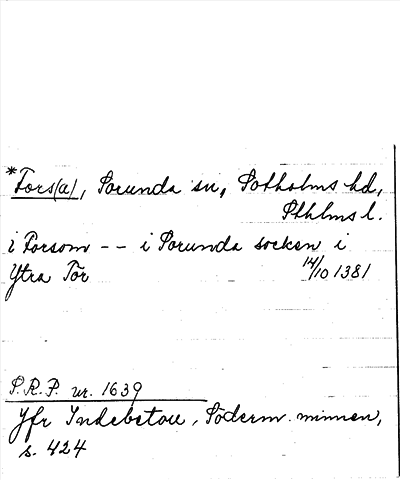 *Fors(a), Sorunda sn, Sotholms hd,
Sthlms l.
i Forsom -- i Sorunda socken i
Ytra Tör 14/10 1381
S.R.P. nr. 1639
Jfr Indebetou, Söderm. minnen,
s. 424